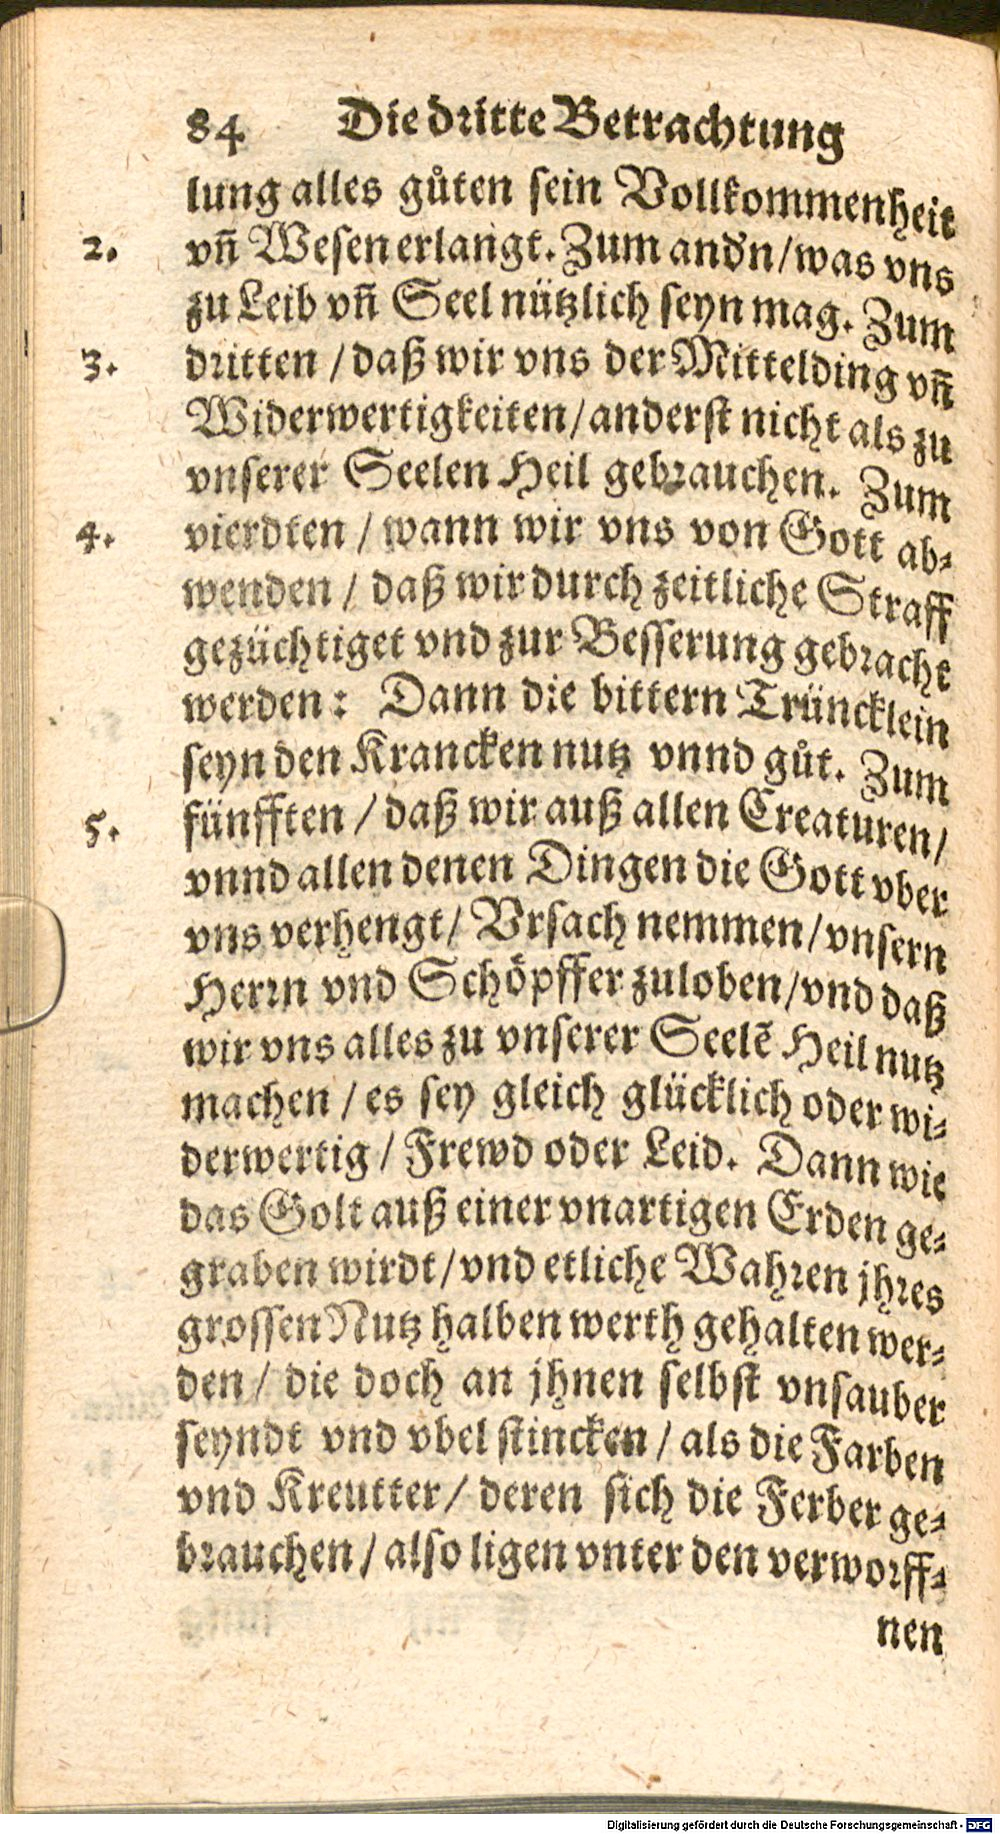 84 Die dritte Betrachtung
lung alles gůten sein Vollkommenheit
2. vñ Wesen erlangt. Zum andn/was vns
zu Leib vñ Seel nützlich seyn mag. Zum
3. dritten / daß wir vns der Mittelding vñ
Widerwertigkeiten/anderst nicht als zu
vnserer Seelen Heil gebrauchen. Zum
4. vierdten / wann wir vns von Gott ab-
wenden / daß wir durch zeitliche Straff
gezüchtiget vnd zur Besserung gebracht
werden: Dann die bittern Trüncklein
seyn den Krancken nutz vnnd gůt. Zum
5. fünfften / daß wir auß allen Creaturen/
vnnd allen denen Dingen die Gott vber
vns verhengt/ Vrsach nemmen/vnsern
Herrn vnd Schöpffer zuloben/vnd daß
wir vns alles zu vnserer Seelẽ Heil nutz
machen / es sey gleich glücklich oder wi-
derwertig / Frewd oder Leid. Dann wie
das Golt auß einer vnartigen Erden ge-
graben wirdt/vnd etliche Wahren jhres
grossen Nutz halben werth gehalten wer-
den / die doch an jhnen selbst vnsauber
seyndt vnd vbel stincken / als die Farben
vnd Kreutter/ deren sich die Ferber ge-
brauchen / also ligen vnter den verworff-
nen
Digitalisierung gefördert durch die Deutsche Forschungsgemeinschaft - DFG